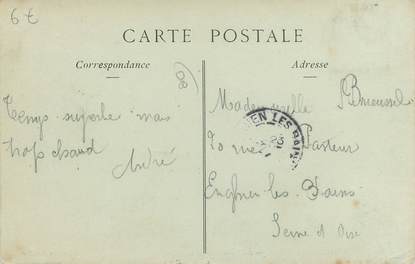 6€
CARTE POSTALE
Correspondance
Adresse
Temps superbe mais
trop chaud
André
Mademoiselle
rue Pasteur
Enghien les Bains
Seine et Oise
EN LES BAINS